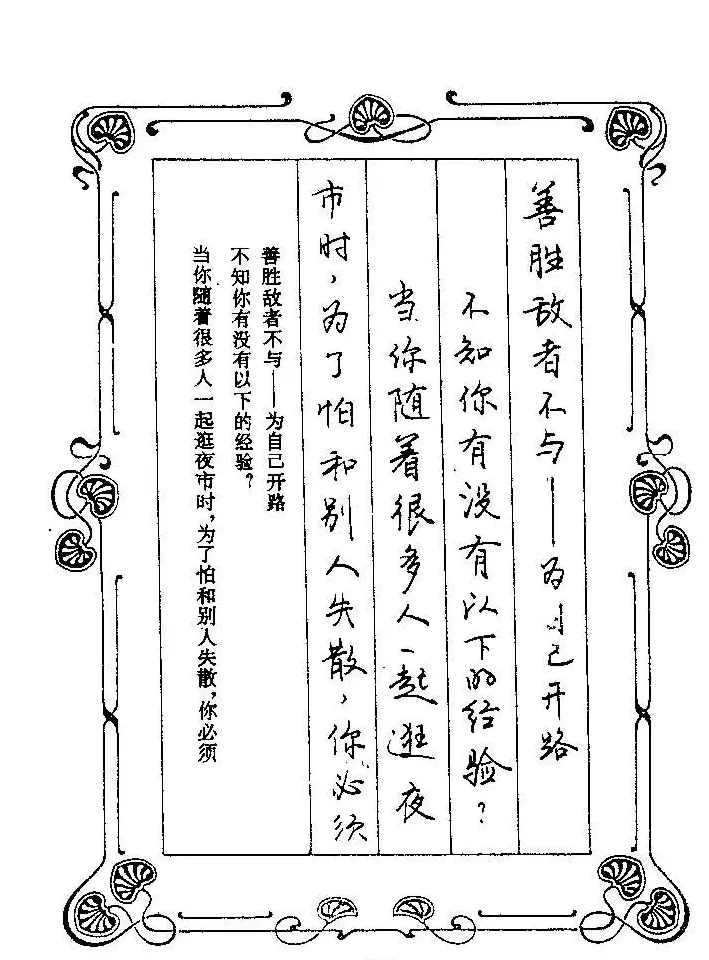 善胜敌者不与——为自己开路
不知你有没有以下的经验？
当你随着很多人一起逛夜
市时，为了怕和别人失散，你必须
善胜敌者不与——为自己开路
不知你有没有以下的经验？
当你随着很多人一起逛夜市时，为了怕和别人失散，你必须